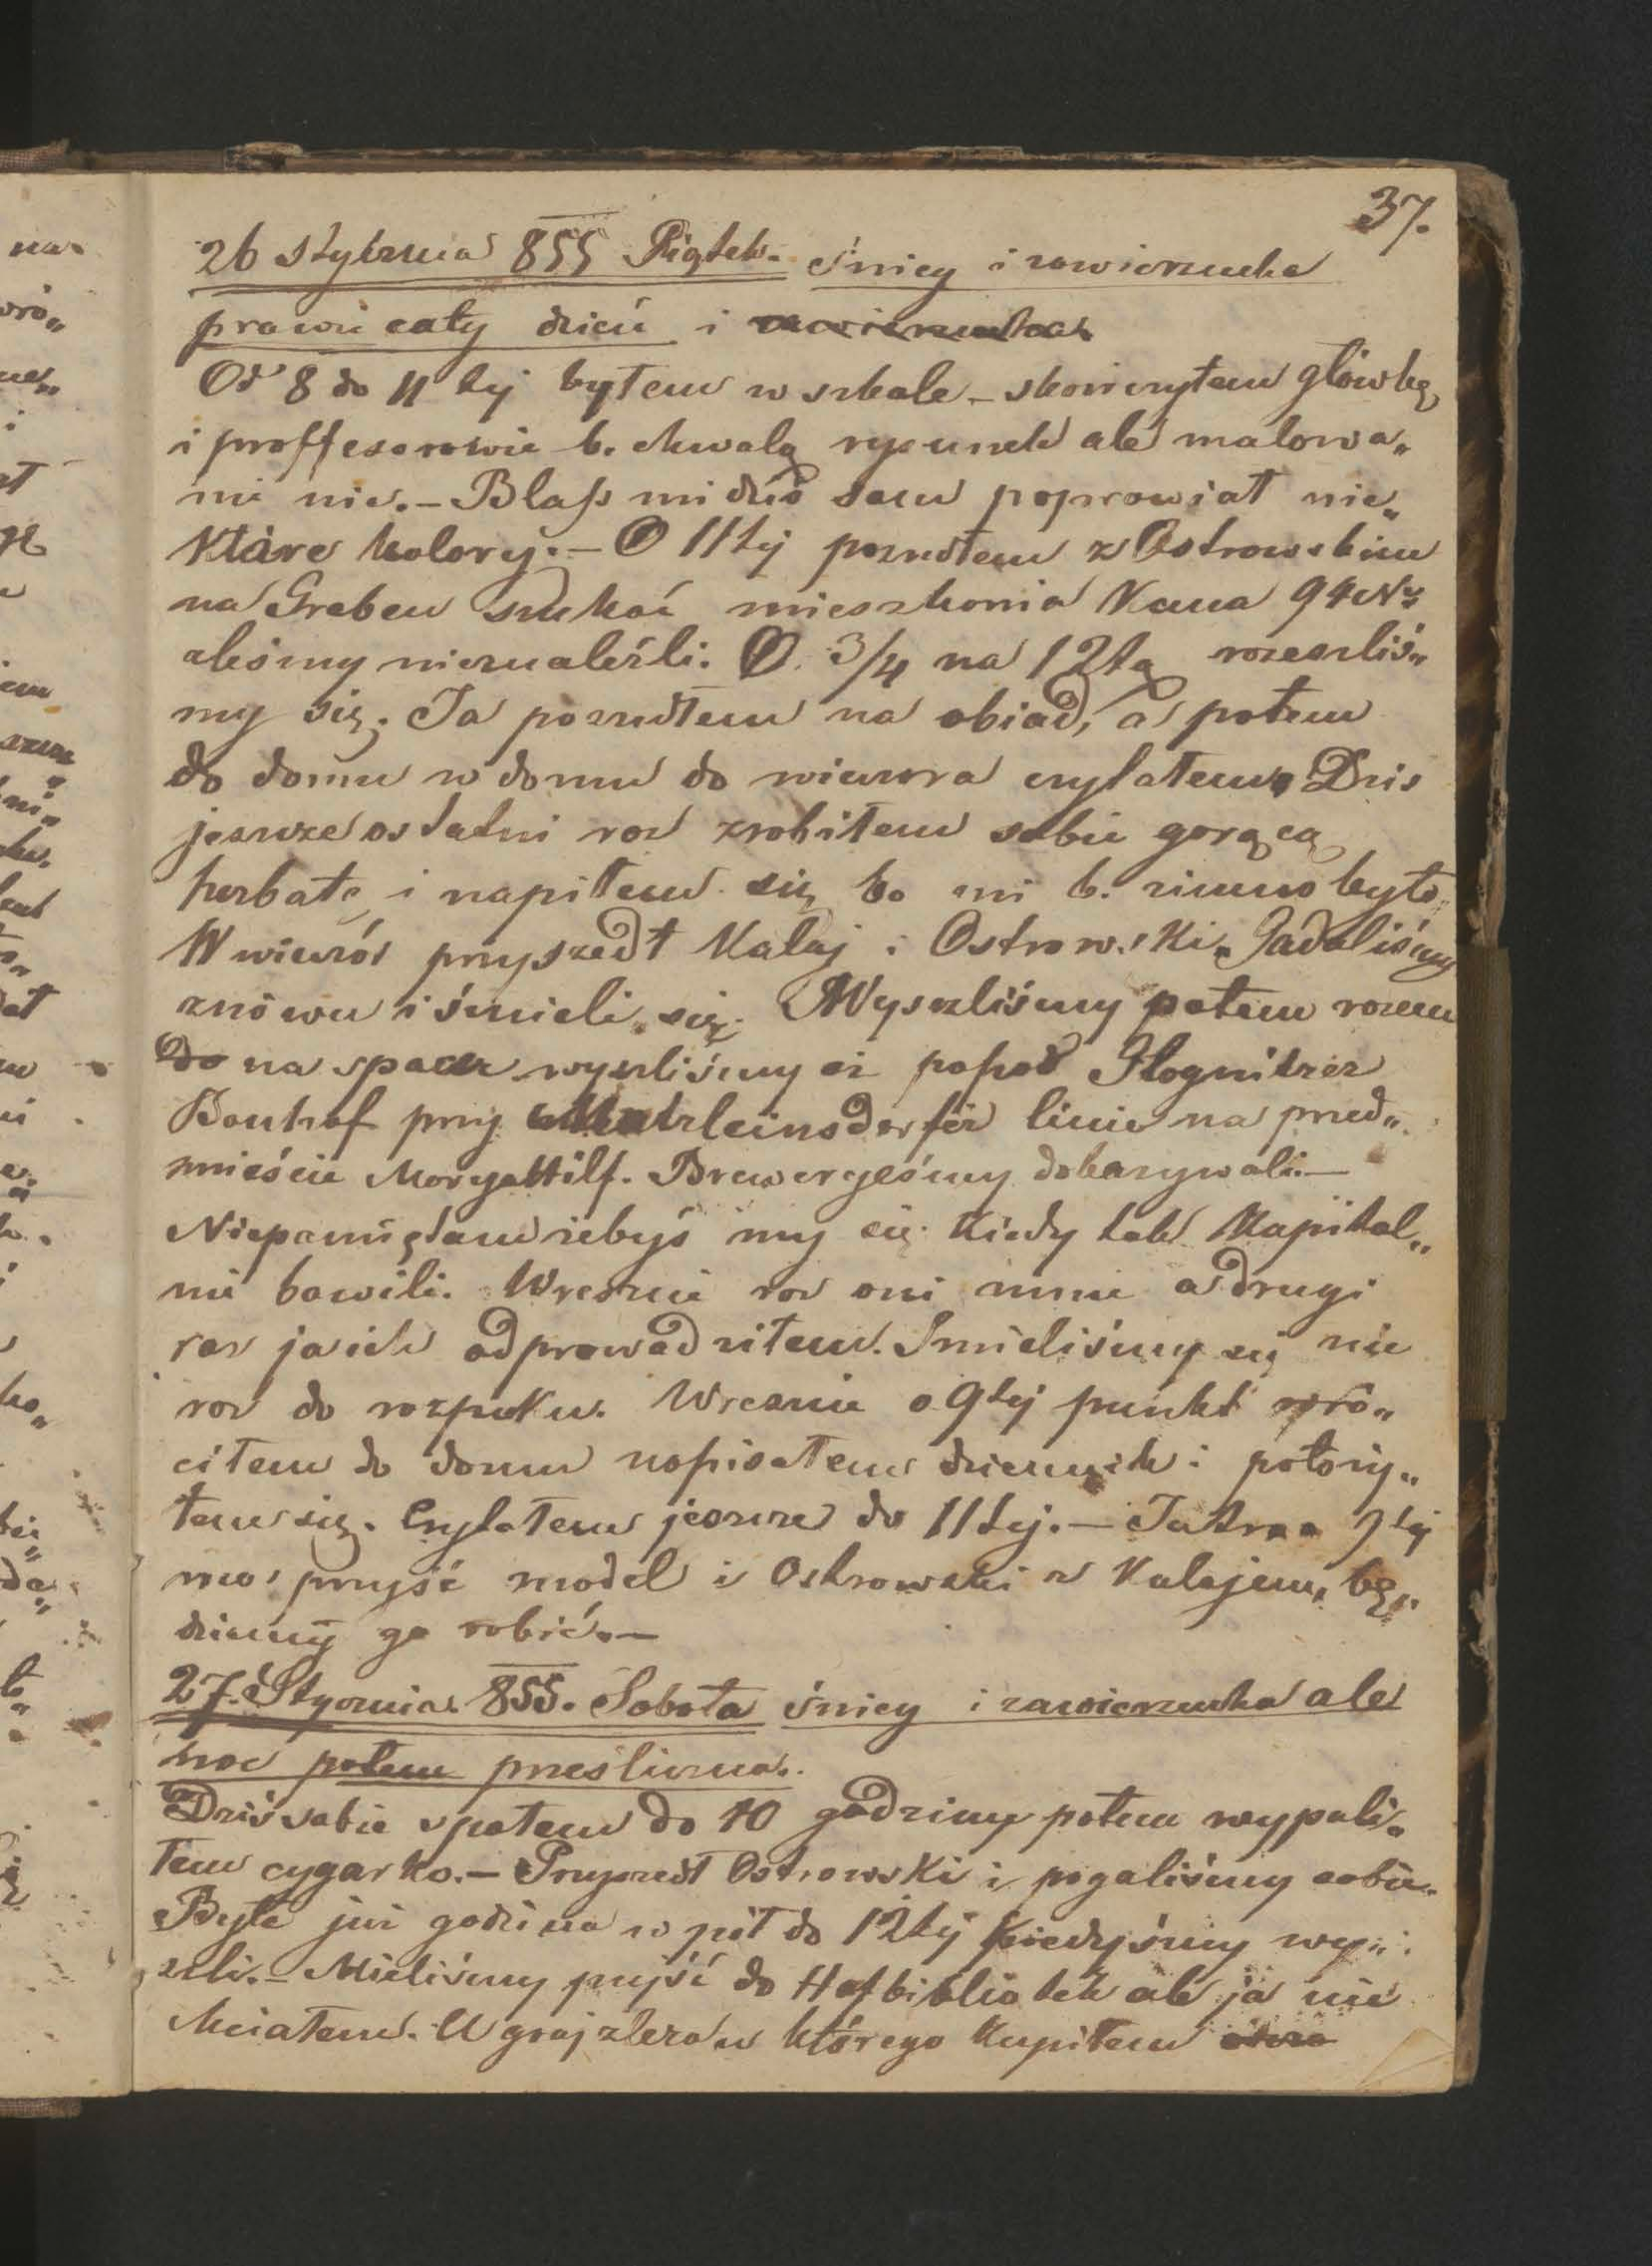 37.
26 Stycznia 855 Piątek. śnieg i zawierucha
prawie cały dzień i zawierucha.
Od 8 do 11tej byłem w szkole – skończyłem główkę
i proffesorowie b. chwalą rysunek ale malowa„
nie nie. – Blaſs mi dziś sam poprawiał nie„
które kolory. – O 11tej poszedłem z Ostrowskim
na Graben szukać mieszkania Kana 94 Nr
aleśmy nieznaleźli. O 3/4 na 12tą rozeszliś„
my się. Ja poszedłem na obiad, a potem
do domu w domu do wieczora czytałem. Dziś
jeszcze ostatni raz zrobiłem sobie gorącą
herbatę i napiłem się bo mi b. zimno było
W wieczór przyszedł Kalaj i Ostrowski. Gadaliśmy
znowu i śmieli się. Wyszliśmy potem razem
do na spacer wyszliśmy aż popod Glognitzer
Banhof przy Matzleinsdorfer linie na przed„
mieście Maryahilf. Breweryeśmy dokazywali. –
Niepamiętam żebyś my się kiedy tak kapital„
nie bawili. Wreszcie raz oni mnie a drugi
raz ja ich odprowadziłem. Smieliśmy się nie
raz do rozpuku. Wreszcie o 9tej punkt wró„
ciłem do domu napisałem dziennik i położy„
łem się. Czytałem jeszcze do 11tej. – Jutro o 9tej
ma przyjść model i Ostrowski z Kalajem, bę„
dziemy go robić. –
27. Stycznia 855. Sobota śnieg i zawierucha ale
noc potem prześliczna.
Dziś sobie spałem do 10 godziny potem wypali„
łem cygarko. – Przyszedł Ostrowski i pogaliśmy sobie.
Była już godzina w pół do 12tej kiedyśmy wy„
szli. – Mieliśmy pujść do Hofbibliotek ale ja nie
chciałem. U grajzlera u którego kupiłem